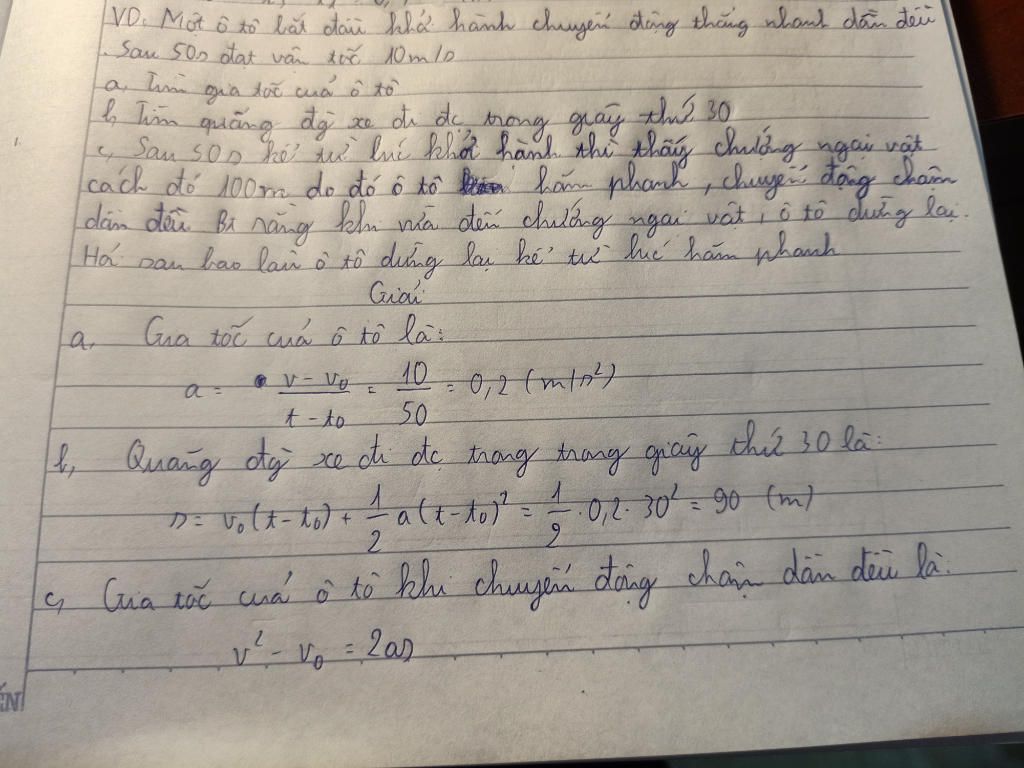 VD. Một ô tô bắt đầu khởi hành chuyển động thẳng nhanh dần đều
. Sau 50s đạt vận tốc 10m/s
a, Tìm gia tốc của ô tô
b, Tìm quãng đg xe đi đc trong giây thứ 30
c, Sau 50s kể từ lúc khởi hành thì thấy chướng ngại vật
cách đó 100m do đó ô tô hãm phanh, chuyển động chậm
dần đều. Bt rằng khi vừa đến chướng ngại vật, ô tô dừng lại.
Hỏi sau bao lâu ô tô dừng lại kể từ lúc hãm phanh
Giải
a, Gia tốc của ô tô là:
a = v - v₀ / t - t₀ = 10 / 50 = 0,2 (m/s²)
b, Quãng đg xe đi đc trong trong giây thứ 30 là:
s = v₀(t - t₀) + 1/2 a(t - t₀)² = 1/2 . 0,2 . 30² = 90 (m)
c, Gia tốc của ô tô khi chuyển động chậm dần đều là:
v² - v₀ = 2as